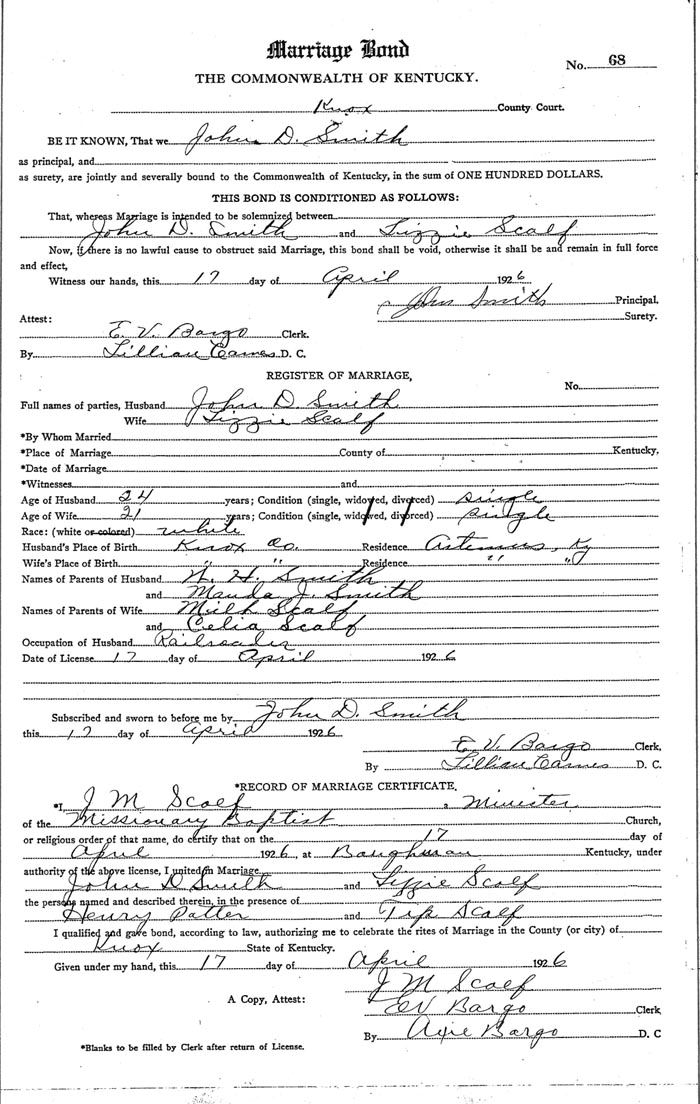 Marriage Bond
No. 68
THE COMMONWEALTH OF KENTUCKY.
Knox County Court.
BE IT KNOWN, That we John D. Smith
as principal, and
as surety, are jointly and severally bound to the Commonwealth of Kentucky, in the sum of ONE HUNDRED DOLLARS.
THIS BOND IS CONDITIONED AS FOLLOWS:
That, whereas Marriage is intended to be solemnized between
John D. Smith and Lizzie Scalf
Now, if there is no lawful cause to obstruct said Marriage, this bond shall be void, otherwise it shall be and remain in full force
and effect,
Witness our hands, this 17 day of April 1926
John Smith Principal.
Surety.
Attest:
E. V. Bargo Clerk.
By Lillian Eames D. C.
REGISTER OF MARRIAGE,
No.
Full names of parties, Husband John D Smith
Wife Lizzie Scalf
*By Whom Married
*Place of Marriage County of Kentucky.
*Date of Marriage
*Witnesses and
Age of Husband 24 years; Condition (single, widowed, divorced) single
Age of Wife 21 years; Condition (single, widowed, divorced) single
Race: (white or colored) white
Husband's Place of Birth Knox Co. Residence Artemus, Ky
Wife's Place of Birth " " Residence " "
Names of Parents of Husband H. Smith
and Manda J. Smith
Names of Parents of Wife Milt Scalf
and Celia Scalf
Occupation of Husband Railroader
Date of License 17 day of April 1926
Subscribed and sworn to before me by John D. Smith
this 17 day of April 1926
E. V. Bargo Clerk,
By Lillian Eames D. C.
*RECORD OF MARRIAGE CERTIFICATE.
*I, J M Scalf, Minister
of the Missionary Baptist Church,
or religious order of that name, do certify that on the 17 day of
April 1926, at Baughman Kentucky, under
authority of the above license, I united in Marriage
John D Smith and Lizzie Scalf
the persons named and described therein, in the presence of
Henry Patter and Tip Scalf
I qualified and gave bond, according to law, authorizing me to celebrate the rites of Marriage in the County (or city) of
Knox State of Kentucky.
Given under my hand, this 17 day of April 1926
J M Scalf
A Copy, Attest: EV Bargo Clerk
By Bargo D. C
*Blanks to be filled by Clerk after return of License.